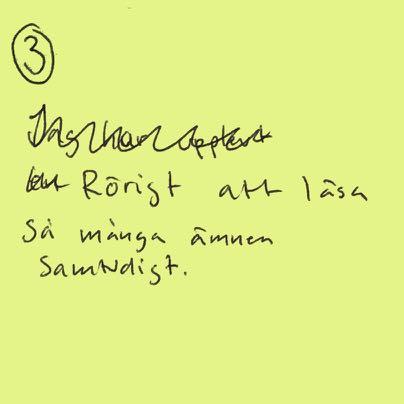 3
Jag har upplevt
Rörigt att läsa
så många ämnen
samtidigt.